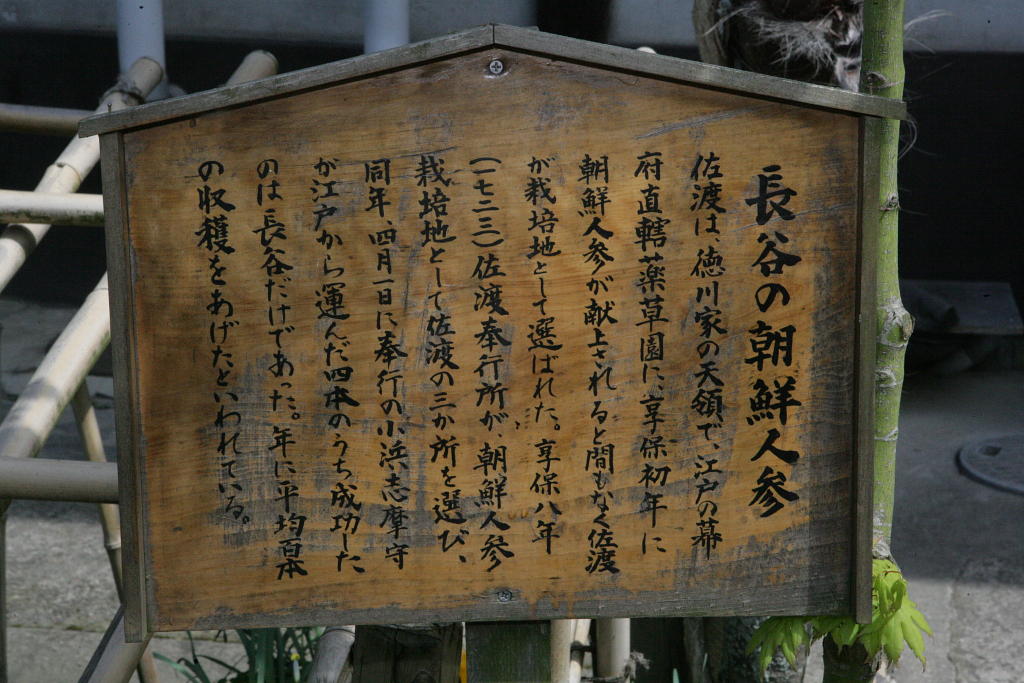 長谷の朝鮮人参
佐渡は、徳川家の天領で、江戸の幕
府直轄薬草園に、享保初年に
朝鮮人参が献上されると間もなく佐渡
が栽培地として選ばれた。享保八年
(一七二三)佐渡奉行所が、朝鮮人参
栽培地として佐渡の三か所を選び、
同年四月一日に奉行の小浜志摩守
が江戸から運んだ四本のうち成功した
のは長谷だけであった。年に平均百本
の収穫をあげたといわれている。